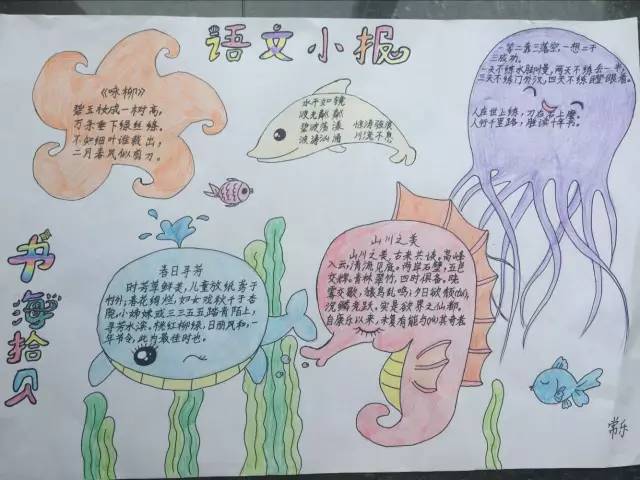 语文小报
《咏柳》
碧玉妆成一树高,
万条垂下绿丝绦。
不知细叶谁裁出,
二月春风似剪刀。
水平如镜
波光粼粼
碧波荡漾 惊涛骇浪
波涛汹涌 川流不息
一等二靠三落空,一想二干
三成功。
一天不练手脚慢,两天不练丢一半,
三天不练门外汉,四天不练瞪眼看。
人在世上练,刀在石上磨。
人行千里路,胜读十年书。
书海拾贝
春日寻芳
时芳草鲜美,儿童放纸鸢于
村外,春花绚烂,如女戏秋千于杏
院,小姊妹或三三五五踏青陌上,
寻芳水滨。桃红柳绿,日丽风和,一
年节令,此为最佳时也。
山川之美
山川之美,古来共谈。高峰
入云,清流见底。两岸石壁,五色
交辉。青林翠竹,四时俱备。晓
雾交歇,猿鸟乱鸣;夕日欲颓(tuí),
沉鳞竞跃,实是欲界之仙都。
自康乐以来,未复有能与(yù)其奇者
常乐